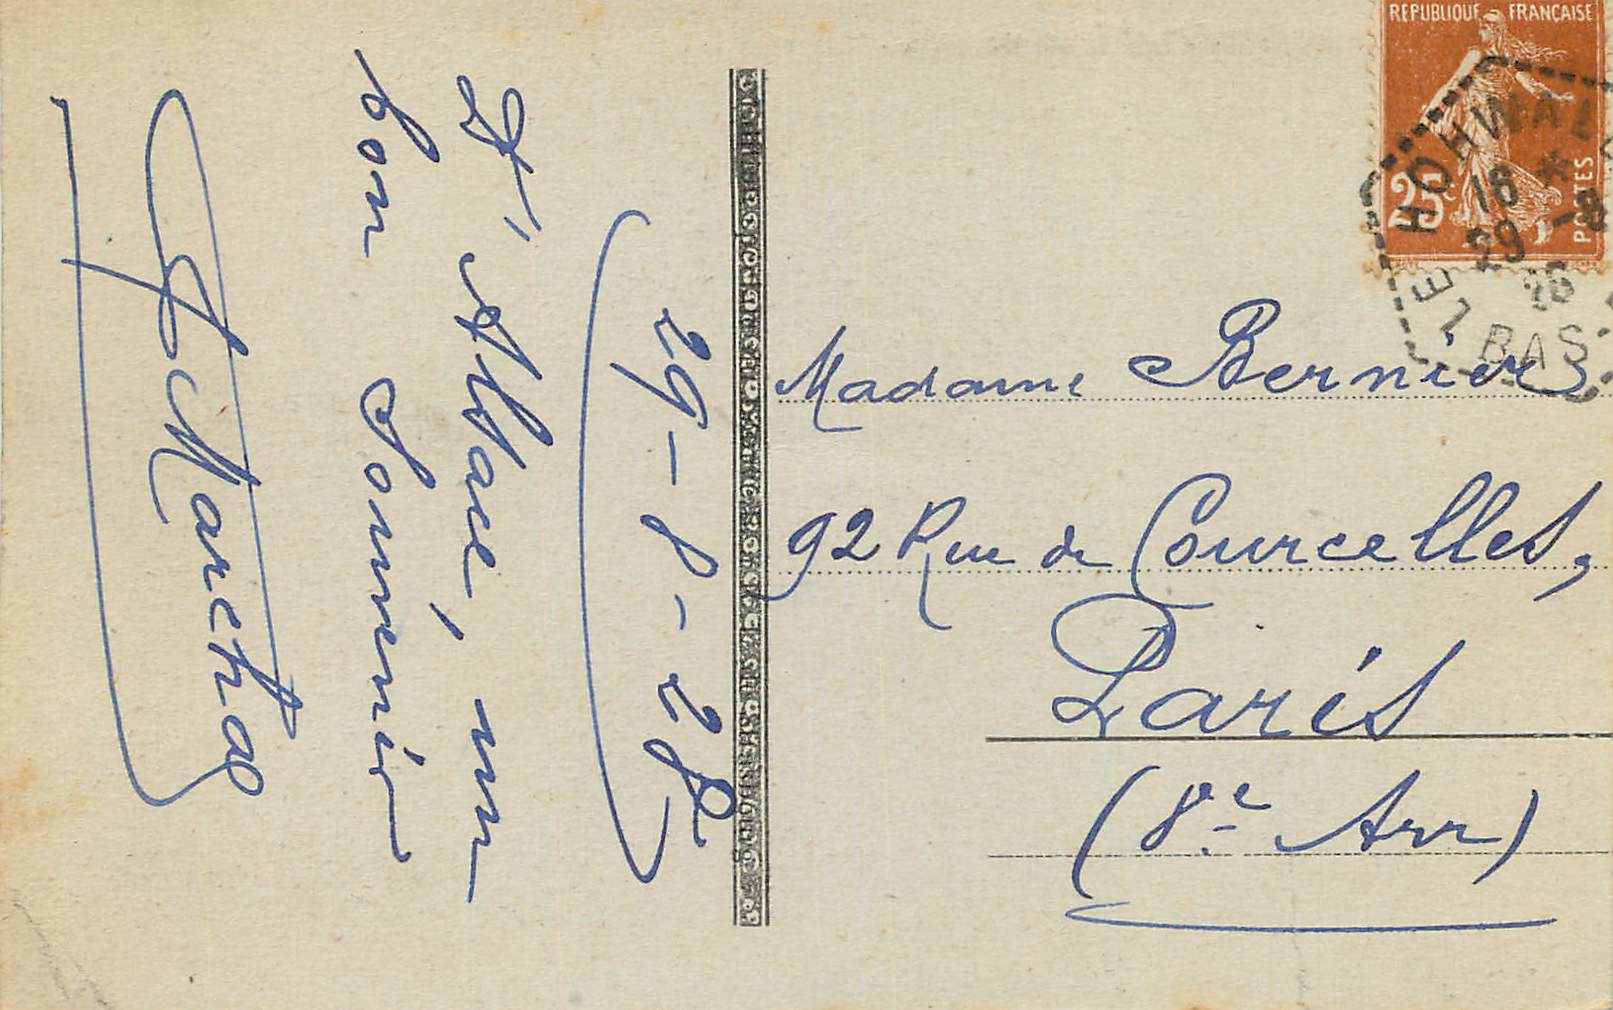 29-8-28
D'Alsace, un
bon Souvenir
Marchal
REPUBLIQUE FRANÇAISE
25c
POSTES
HOHWALD
16 *
29 -8
BAS
Madame Bernier
92 Rue de Courcelles,
Paris
(8e Arr)